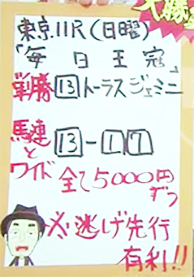 東京11R(日曜)
「毎日王冠」
単勝 13 トーラスジェミニ
馬連とワイド 13-1 7
全て5000円ずつ
逃げ先行
有利!!
大勝